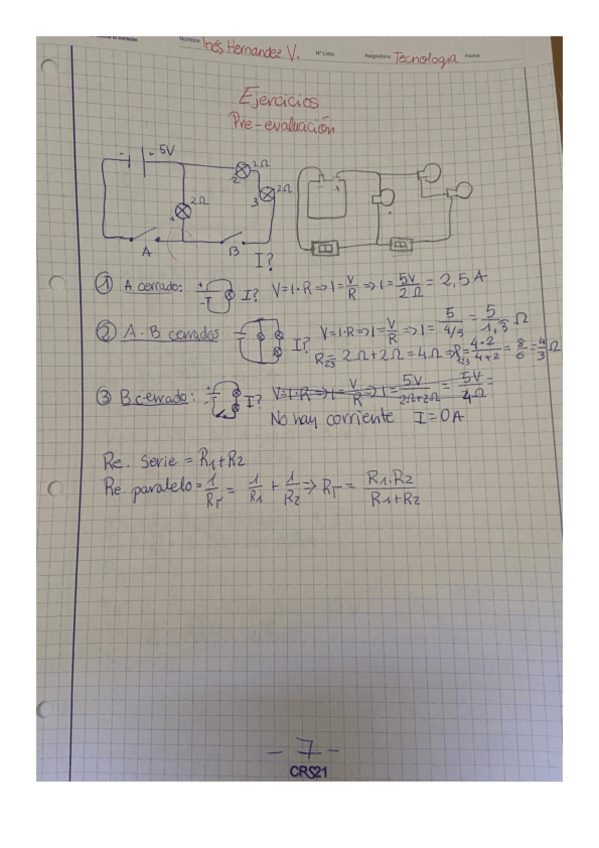 Nombre: Inés Hernandez V. Nº Lista: Asignatura: Tecnología Fecha:
Ejercicios
Pre-evaluación
- + 5V
2Ω
2
2Ω
3
2Ω
1
A
B
I?
① A cerrado: + - I? V=I·R⇒I=V/R⇒I=5V/2Ω=2,5A
② A·B cerrados I? V=I·R⇒I=V/R⇒I=5/4/3=5/1,3Ω
R23=2Ω+2Ω=4Ω⇒R123=4·2/4+2=8/6=4/3Ω
③ B cerrado: + - I? V=I·R⇒I=V/R⇒I=5V/2Ω+2Ω=5V/4Ω=
No hay corriente I=0A
Re. Serie = R1+R2
Re paralelo=1/RT=1/R1+1/R2⇒RT=R1·R2/R1+R2
-7-
CRS21